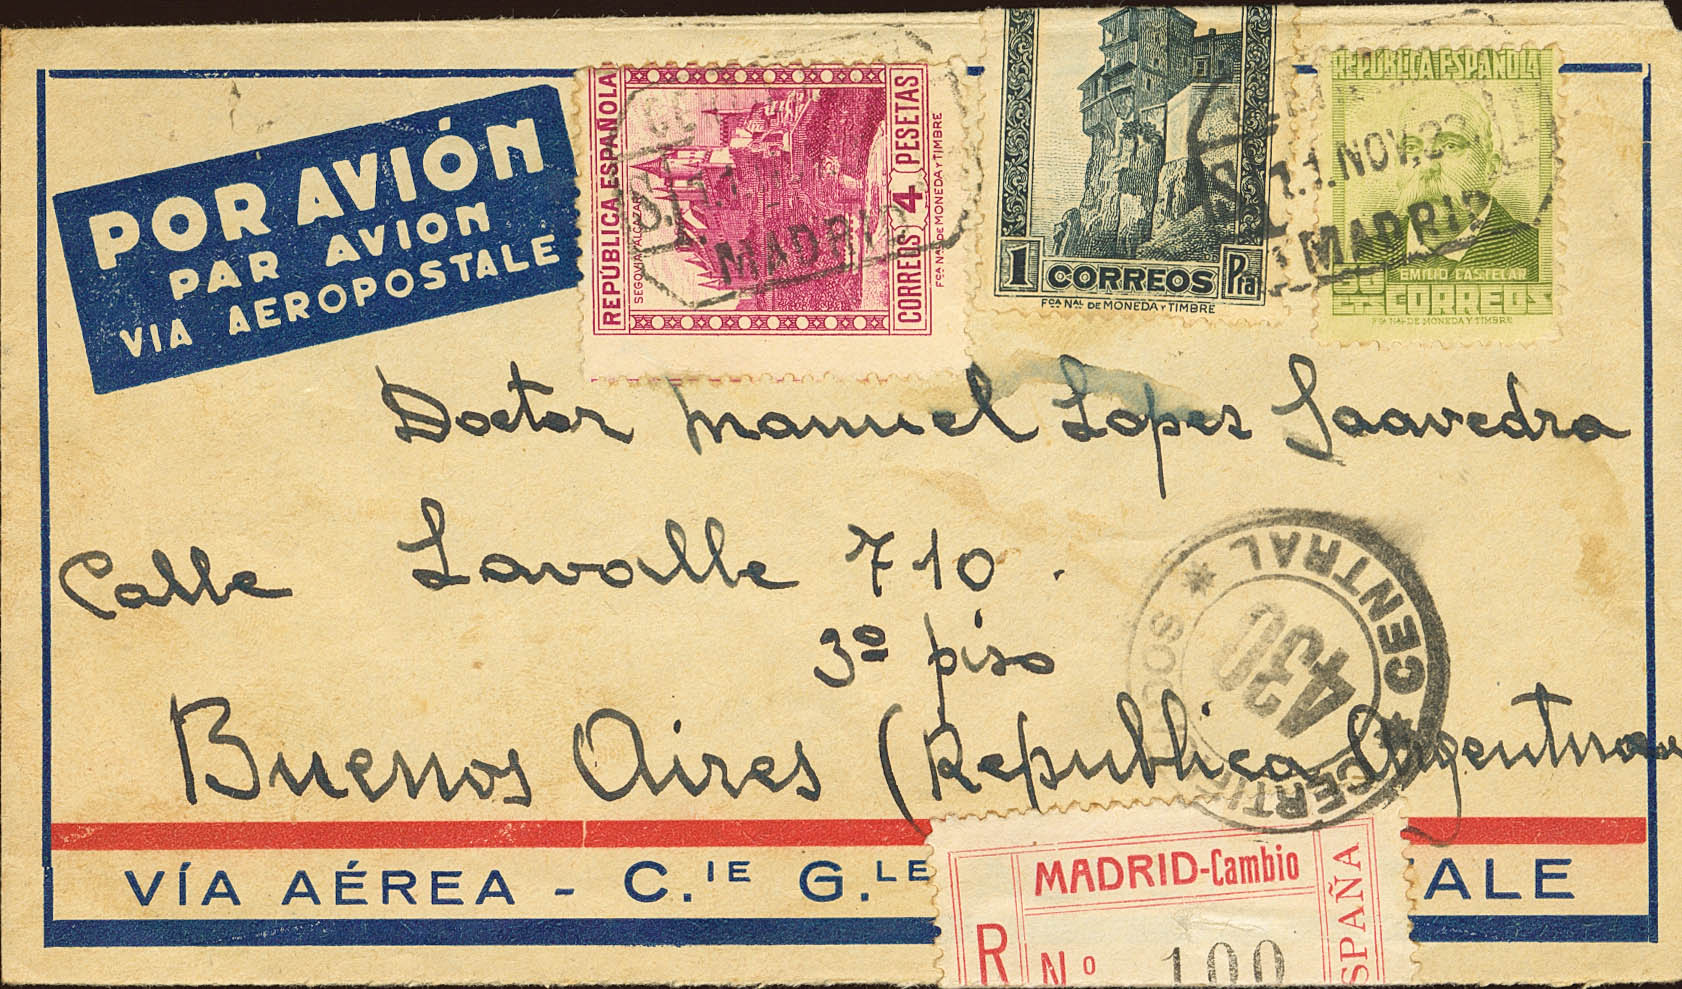 POR AVIÓN
PAR AVION
VIA AEROPOSTALE
REPÚBLICA ESPAÑOLA
SEGOVIA ALCAZAR
CORREOS 4 PESETAS
FCA NAL DE MONEDA Y TIMBRE
MADRID
1 CORREOS Pta
FCA NAL DE MONEDA Y TIMBRE
REPÚBLICA ESPAÑOLA
NOV.
MADRID
EMILIO CASTELAR
CORREOS
FCA NAL DE MONEDA Y TIMBRE
Doctor Manuel Lopez Saavedra
Calle Lavalle 710.
3º piso
Buenos Aires (Republica Argentina)
CERTIFICADOS * CENTRAL *
430
VÍA AÉREA - C.IE G.LE
ALE
MADRID-Cambio
R Nº 100
ESPAÑA